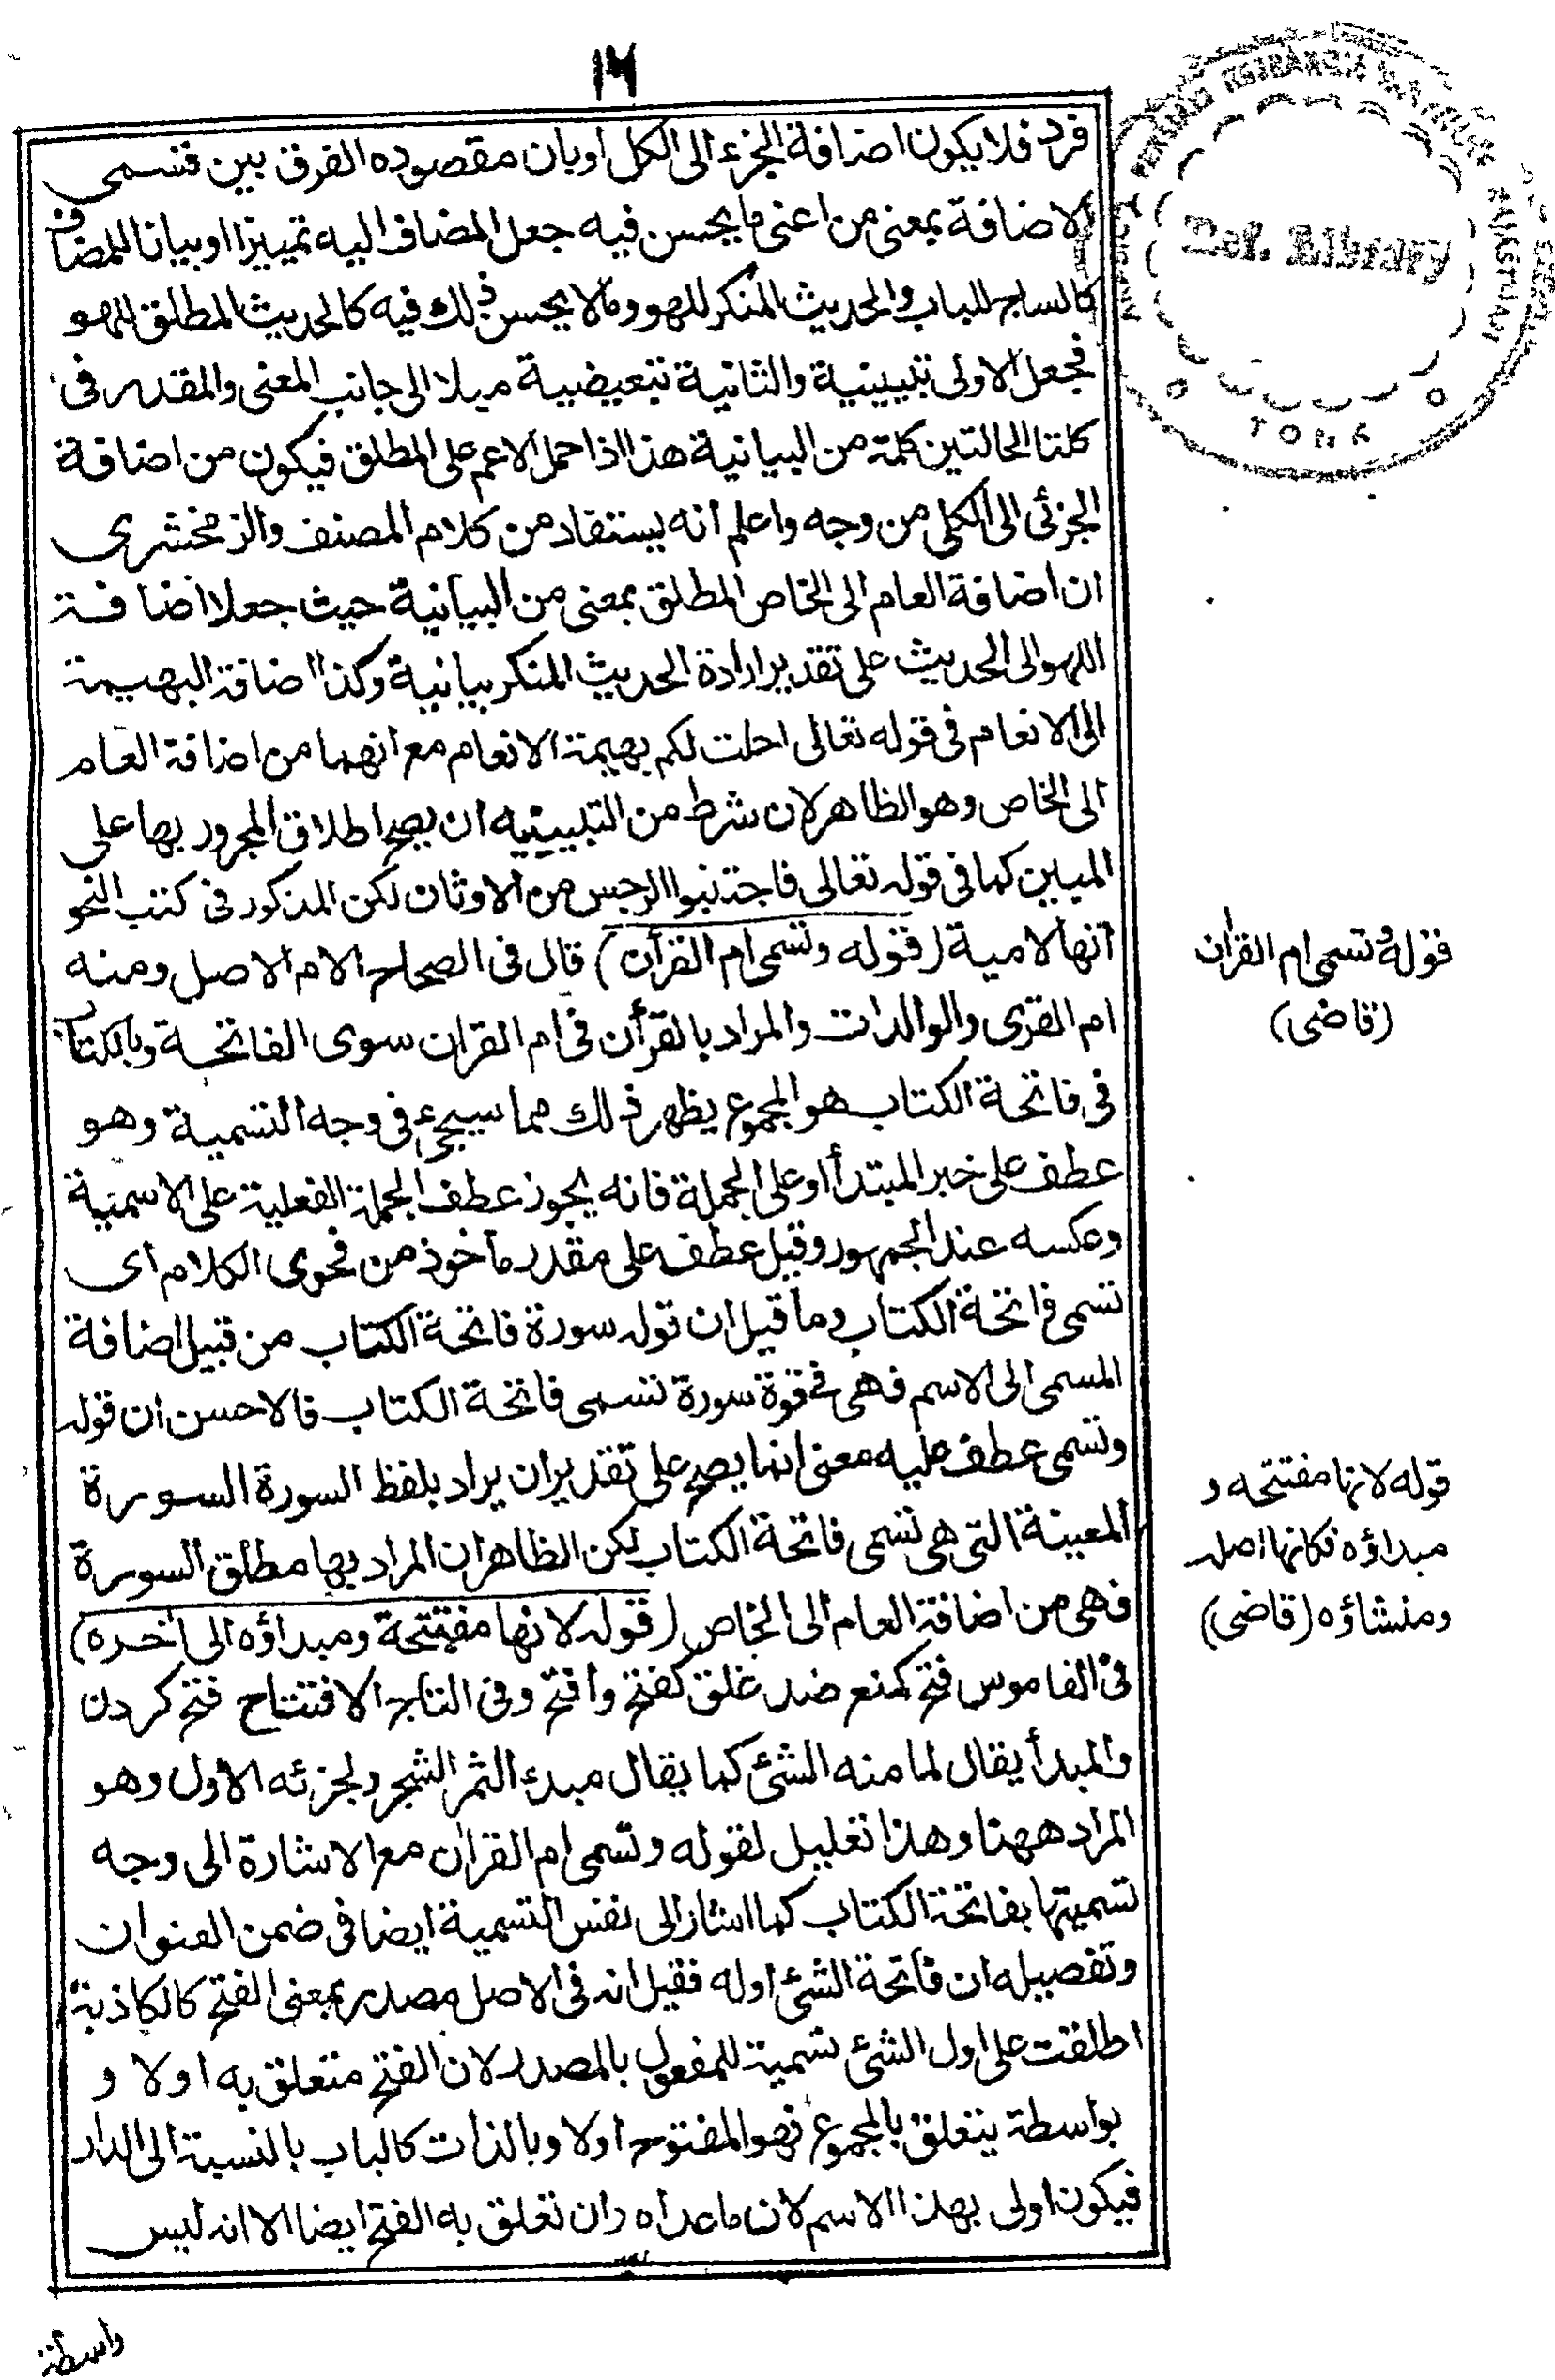 ١٤
فرد فلا يكون اضافة الجزء الى الكل او بان مقصوده الفرق بين قسمى
الاضافة بمعنى من اعنى ما يحسن فيه جعل المضاف اليه تمييزا او بيانا للمضاف
كالساج للباب والحديث المنكر للهو ومالا يحسن ذلك فيه كالحديث المطلق للهو
فجعل الاولى تبيينية والثانية تبعيضية ميلا الى جانب المعنى والمقدر فى
كلتا الحالتين كلمة من البيانية هذا اذا حمل الاعم على المطلق فيكون من اضافة
الجزئى الى الكلى من وجه واعلم انه يستفاد من كلام المصنف والزمخشرى
ان اضافة العام الى الخاص المطلق بمعنى من البيانية حيث جعلا اضافة
اللهو الى الحديث على تقدير ارادة الحديث المنكر بيانية وكذا اضافة البهيمة
الى الانعام فى قوله تعالى احلت لكم بهيمة الانعام مع انهما من اضافة العام
الى الخاص وهو الظاهر لان شرط من التبيينيه ان يصح اطلاق المجرور بها على
المبين كما فى قوله تعالى فاجتنبوا الرجس من الاوثان لكن المذكور فى كتب النحو
انها لامية (قوله وتسمى ام القرأن) قال فى الصحاح الام الاصل ومنه
ام القرى والوالدات والمراد بالقرأن فى ام القران سوى الفاتحة وبالكتاب
فى فاتحة الكتاب هو المجموع يظهر ذلك مما سيجىء فى وجه التسمية وهو
عطف على خبر المبتدأ او على الجملة فانه يجوز عطف الجملة الفعلية على الاسمية
وعكسه عند الجمهور وقيل عطف على مقدر مأخوذ من فحوى الكلام اى
تسمى فاتحة الكتاب وما قيل ان قوله سورة فاتحة الكتاب من قبيل اضافة
المسمى الى الاسم فهى فى قوة سورة تسمى فاتحة الكتاب فالاحسن ان قوله
وتسمى عطف عليه معنى انما يصح على تقدير ان يراد بلفظ السورة السورة
المعينة التى هى تسمى فاتحة الكتاب لكن الظاهر ان المراد بها مطلق السورة
فهى من اضافة العام الى الخاص (قوله لانها مفتتحة ومبداؤه الى اخره)
فى القاموس فتح كمنع ضد غلق كفتح وافتح وفى التاج الافتتاح فتح كردن
والمبدأ يقال لما منه الشئ كما يقال مبدء الثمر الشجر ولجزئه الاول وهو
المراد ههنا وهذا تعليل لقوله وتسمى ام القران مع الاشارة الى وجه
تسميتها بفاتحة الكتاب كما اشار الى نفس التسمية ايضا فى ضمن العنوان
وتفصيله ان فاتحة الشئ اوله فقيل انه فى الاصل مصدر بمعنى الفتح كالكاذبة
اطلقت على اول الشئ تسمية للمفعول بالمصدر لان الفتح متعلق به اولا و
بواسطة يتعلق بالمجموع فهو المفتوح اولا وبالذات كالباب بالنسبة الى الدار
فيكون اولى بهذا الاسم لان ما عداه وان تعلق به الفتح ايضا الا انه ليس
واسطة
قوله وتسمى ام القران
(قاضى)
قوله لانها مفتتحه و
مبداؤه فكانها اصله
ومنشاؤه (قاضى)
Ref. Library
TONK